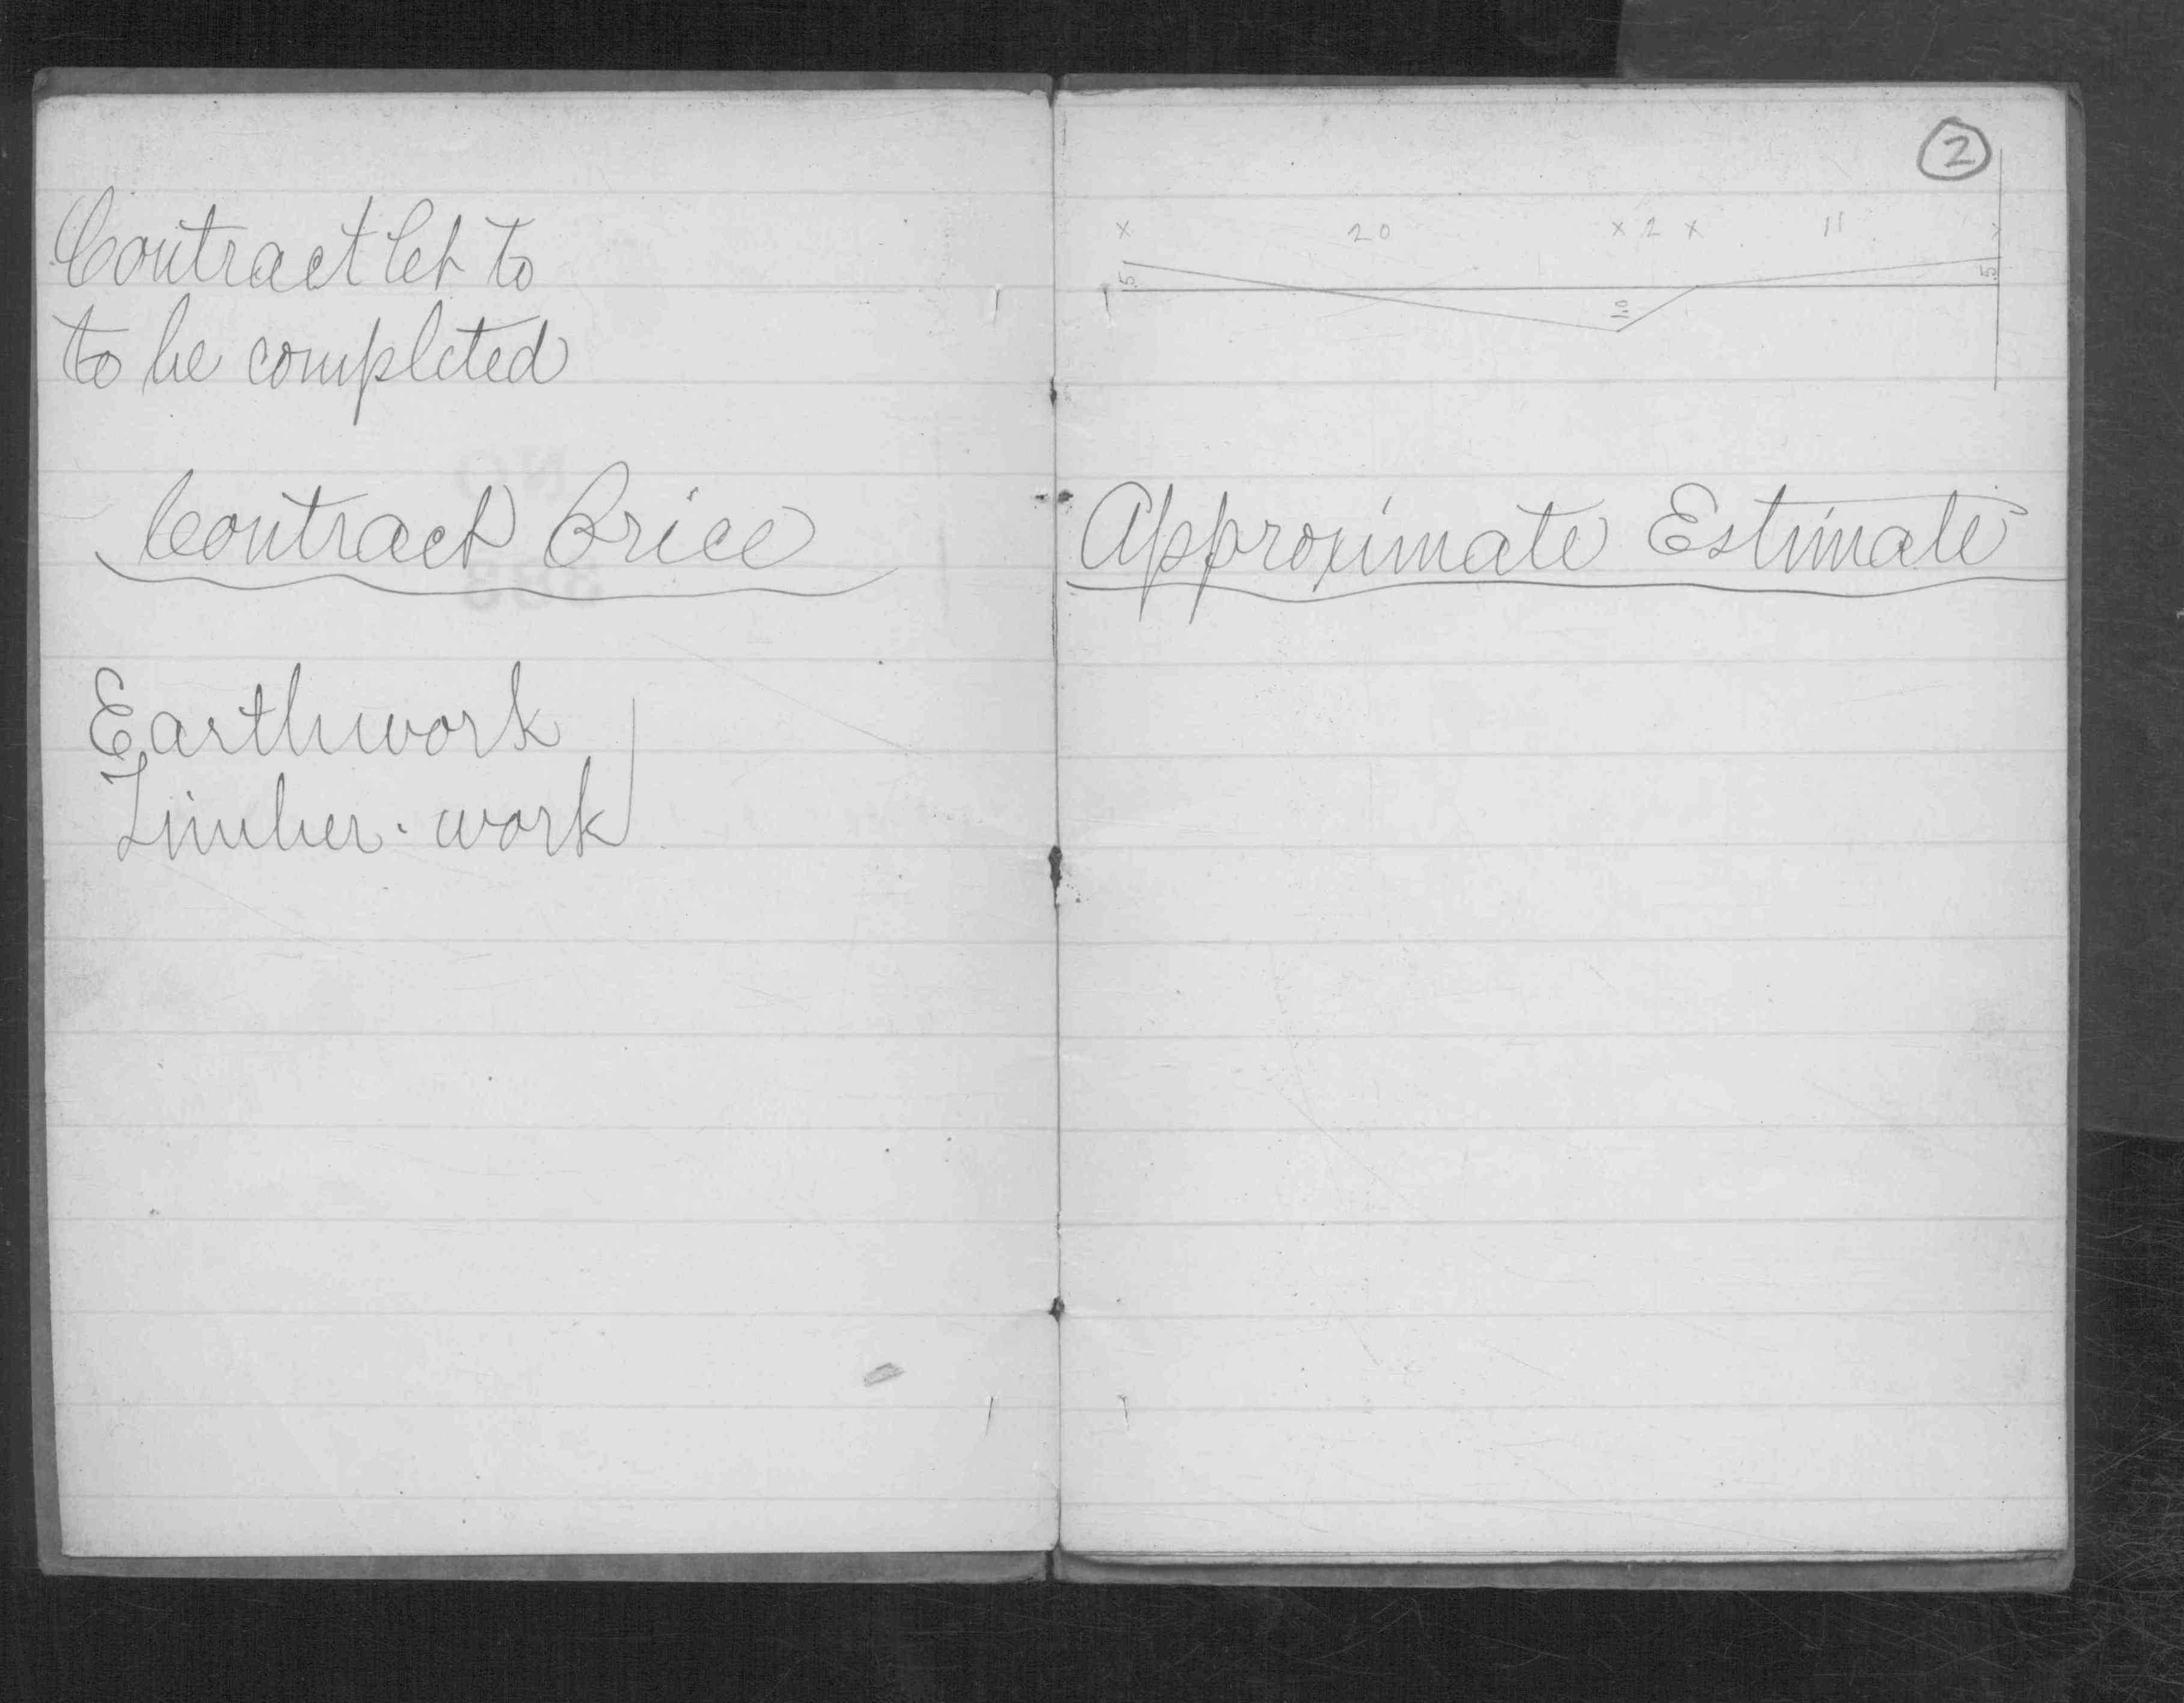 Contract let to
to be completed
Contract Price
Earthwork
Timber. work
2
x 20 x 2 x 11 x
.5 1.0 .5
Approximate Estimate